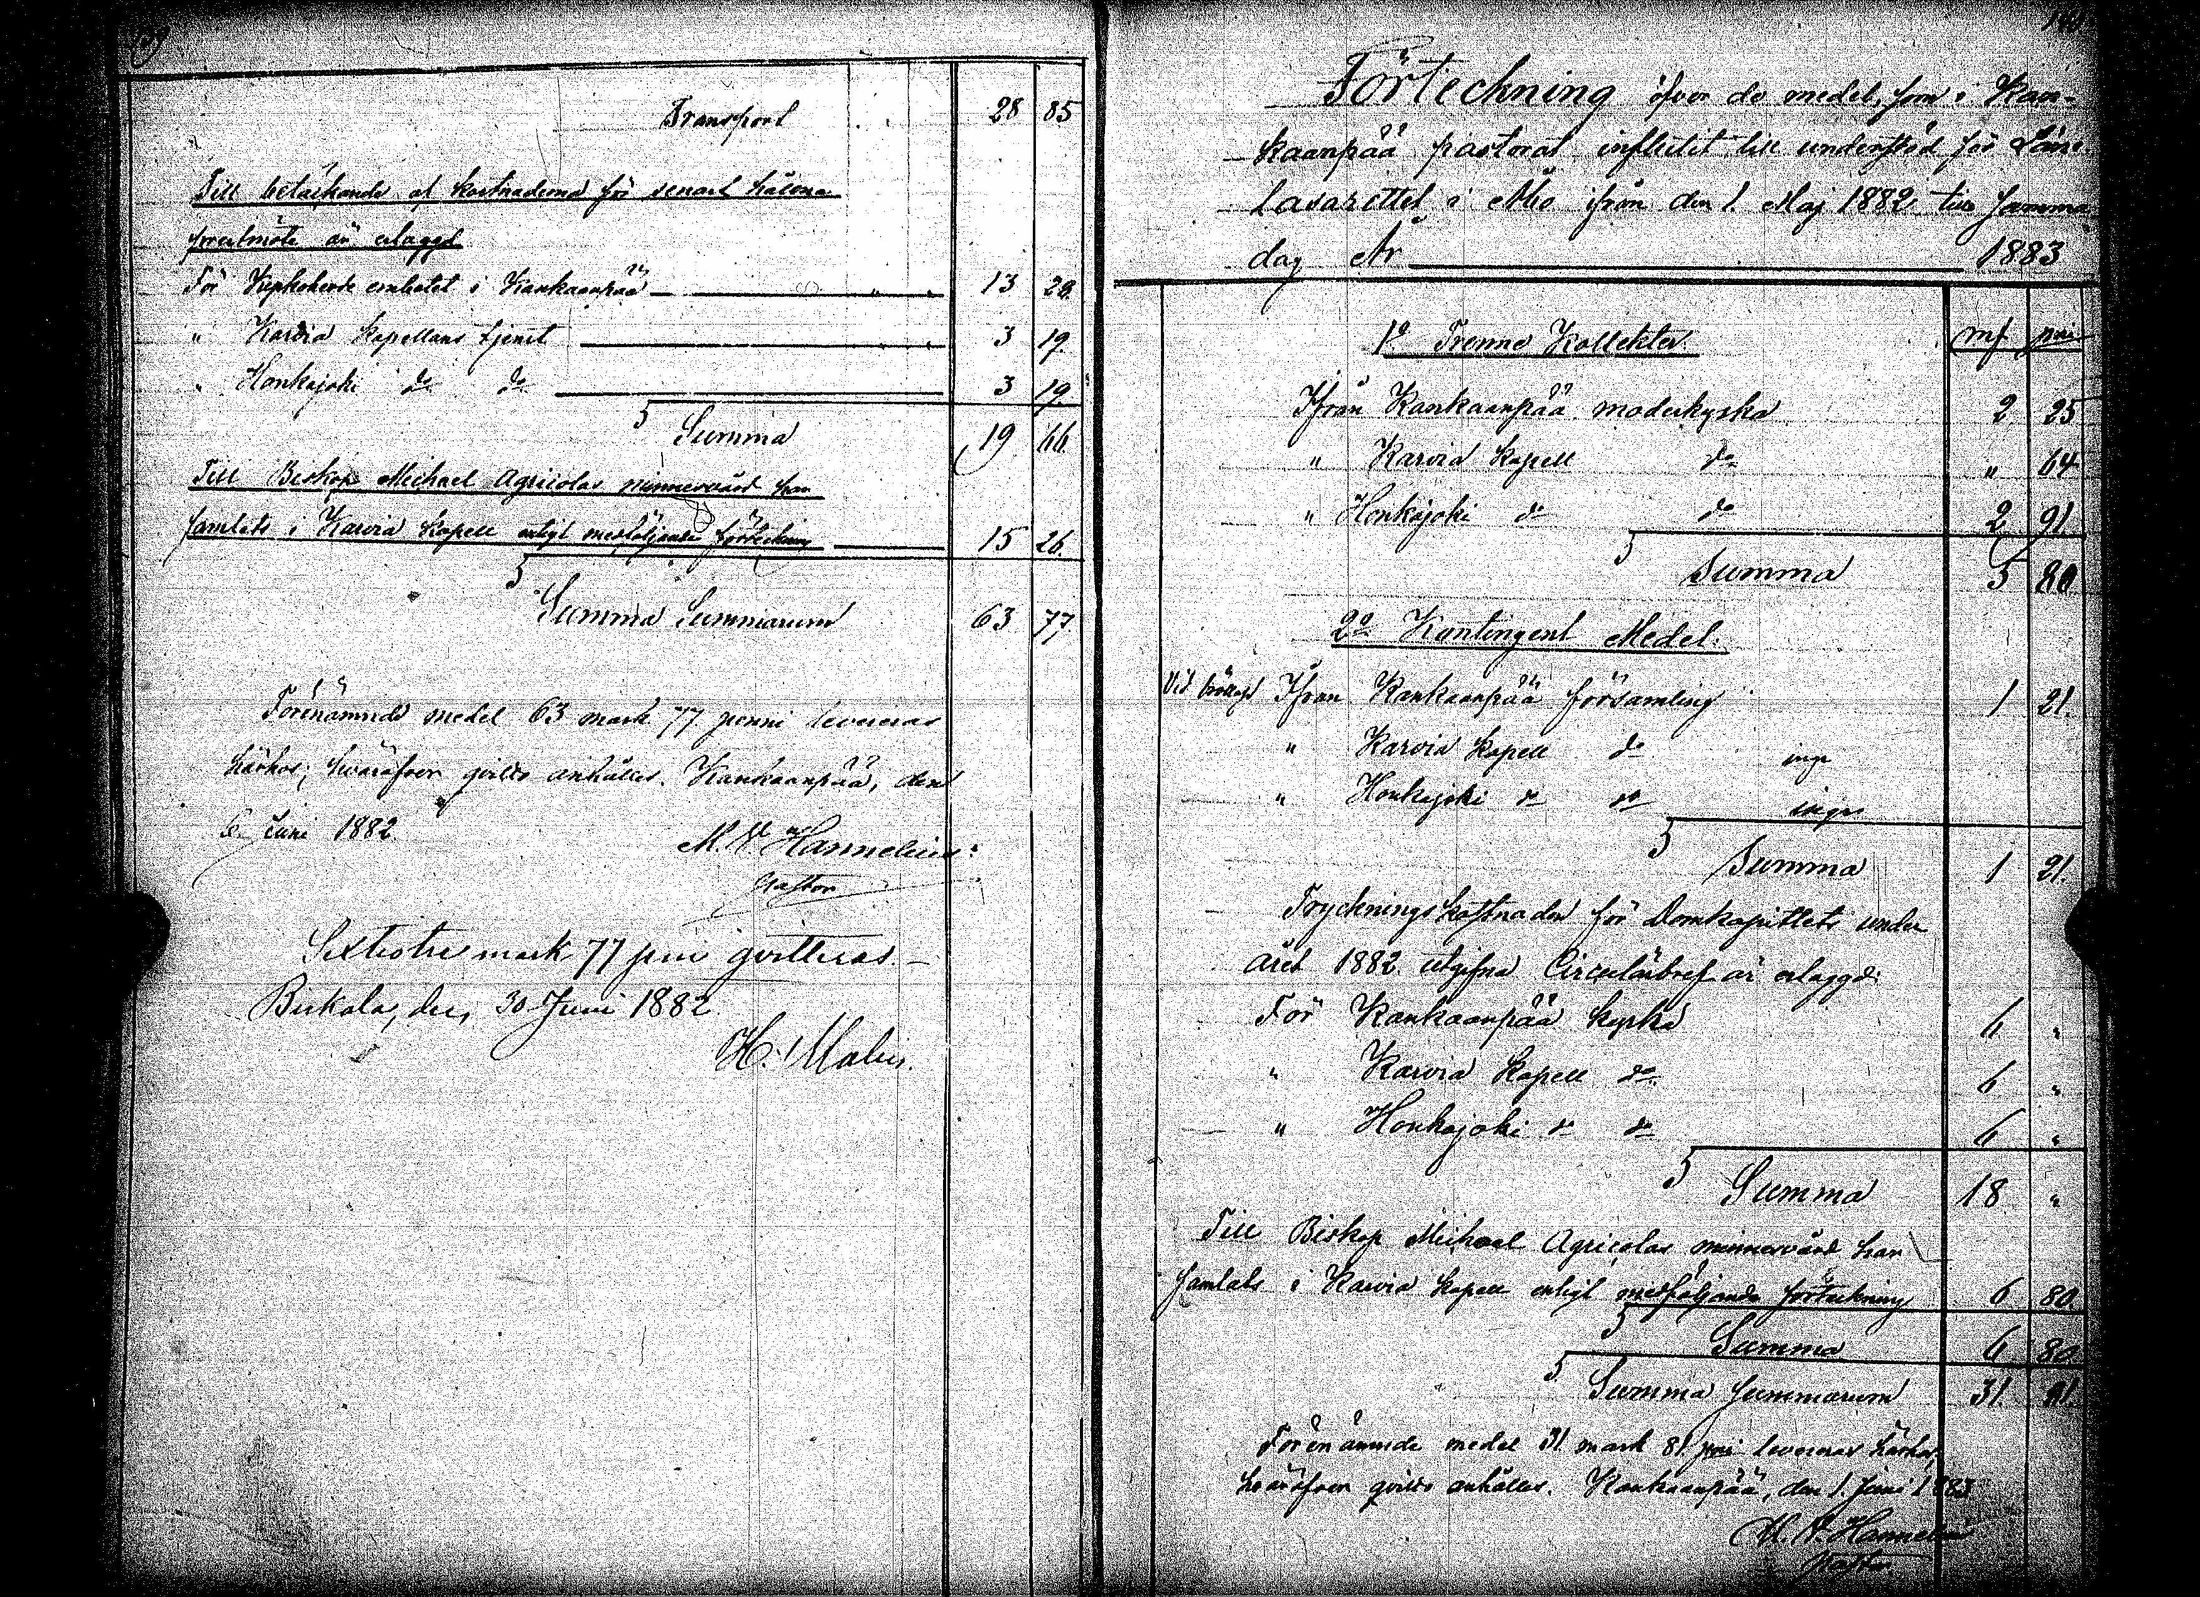 139
Transport 28 85
Till betäckande af kostnaderna för senast hållna
prestmöte är erlagdt
För Kyrkoherde embetet i Kankaanpää 13 28.
" Karvia kapellans tjenst 3 19.
" Honkajoki do do 3 19.
Summa 19 66.
Till Biskop Michael Agricolas minnesvård har
samlats i Karvia kapell enligt medföljande förteckning 15 26.
Summa Summarum 63 77.
Förenämnde medel 63 mark 77 penni levereras
härhos; hvaröfver qvitto anhålles. Kankaanpää, den
6 Juni 1882.
M. V. Hannelius
Pastor
Sextiotre mark 77 pni qvitteras.
Birkala, den 30 Juni 1882
H. Malin.
140
Förteckning öfver de medel, som i Kan-
kaanpää pastorat influtit till understöd för Läns-
Lasarettet i Åbo ifrån den 1. Maj 1882 till samma
dag År 1883
1o Trenne Kollekter. mf pni
Ifrån Kankaanpää moderkyrka 2 25
" Karvia kapell do " 64
" Honkajoki do do 2 91.
Summa 5 80
2o Kontingent Medel.
Vid bröllop Ifrån Kankaanpää församling 1 21.
" Karvia kapell do inga
" Honkajoki do do inga
Summa 1 21.
Tryckningskostnaden för Domkapitlets under
året 1882 utgifna Circulärbref är erlagd:
För Kankaanpää kyrka 6 "
" Karvia kapell do 6 "
" Honkajoki do do 6 "
Summa 18 "
Till Biskop Michael Agricolas minnesvård har
samlats i Karvia kapell enligt medföljande förteckning 6 80
Summa 6 80.
Summa summarum 31. 81.
Förenämnde medel 31 mark 81. pni levereras härhos,
hvaröfver qvitto anhålles. Kankaanpää, den 1. Juni 1883
M. V. Hannelius
Pastor